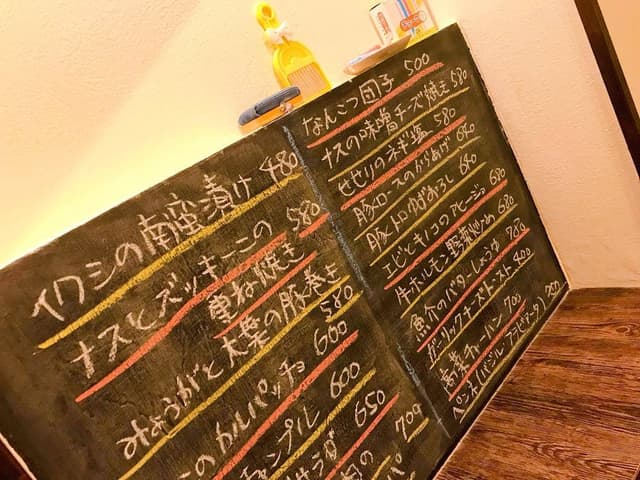 イワシの南蛮漬け 480
ナスとズッキーニの 580
重ね焼き
みょうがと大葉の豚巻き 580
このカルパッチョ 600
チャンプル 600
サラダ 650
肉の 709
なんこつ団子 500
ナスの味噌チーズ焼き 580
せせりのネギ塩 580
豚ロースのからあげ 640
豚トロゆずおろし 640
エビとキノコのアヒージョ 690
牛ホルモン野菜炒め 680
魚介のバターしょうゆ 700
ガーリックチーズトースト 400
高菜チャーハン 700
ペンネ(バジル・アラビアータ)